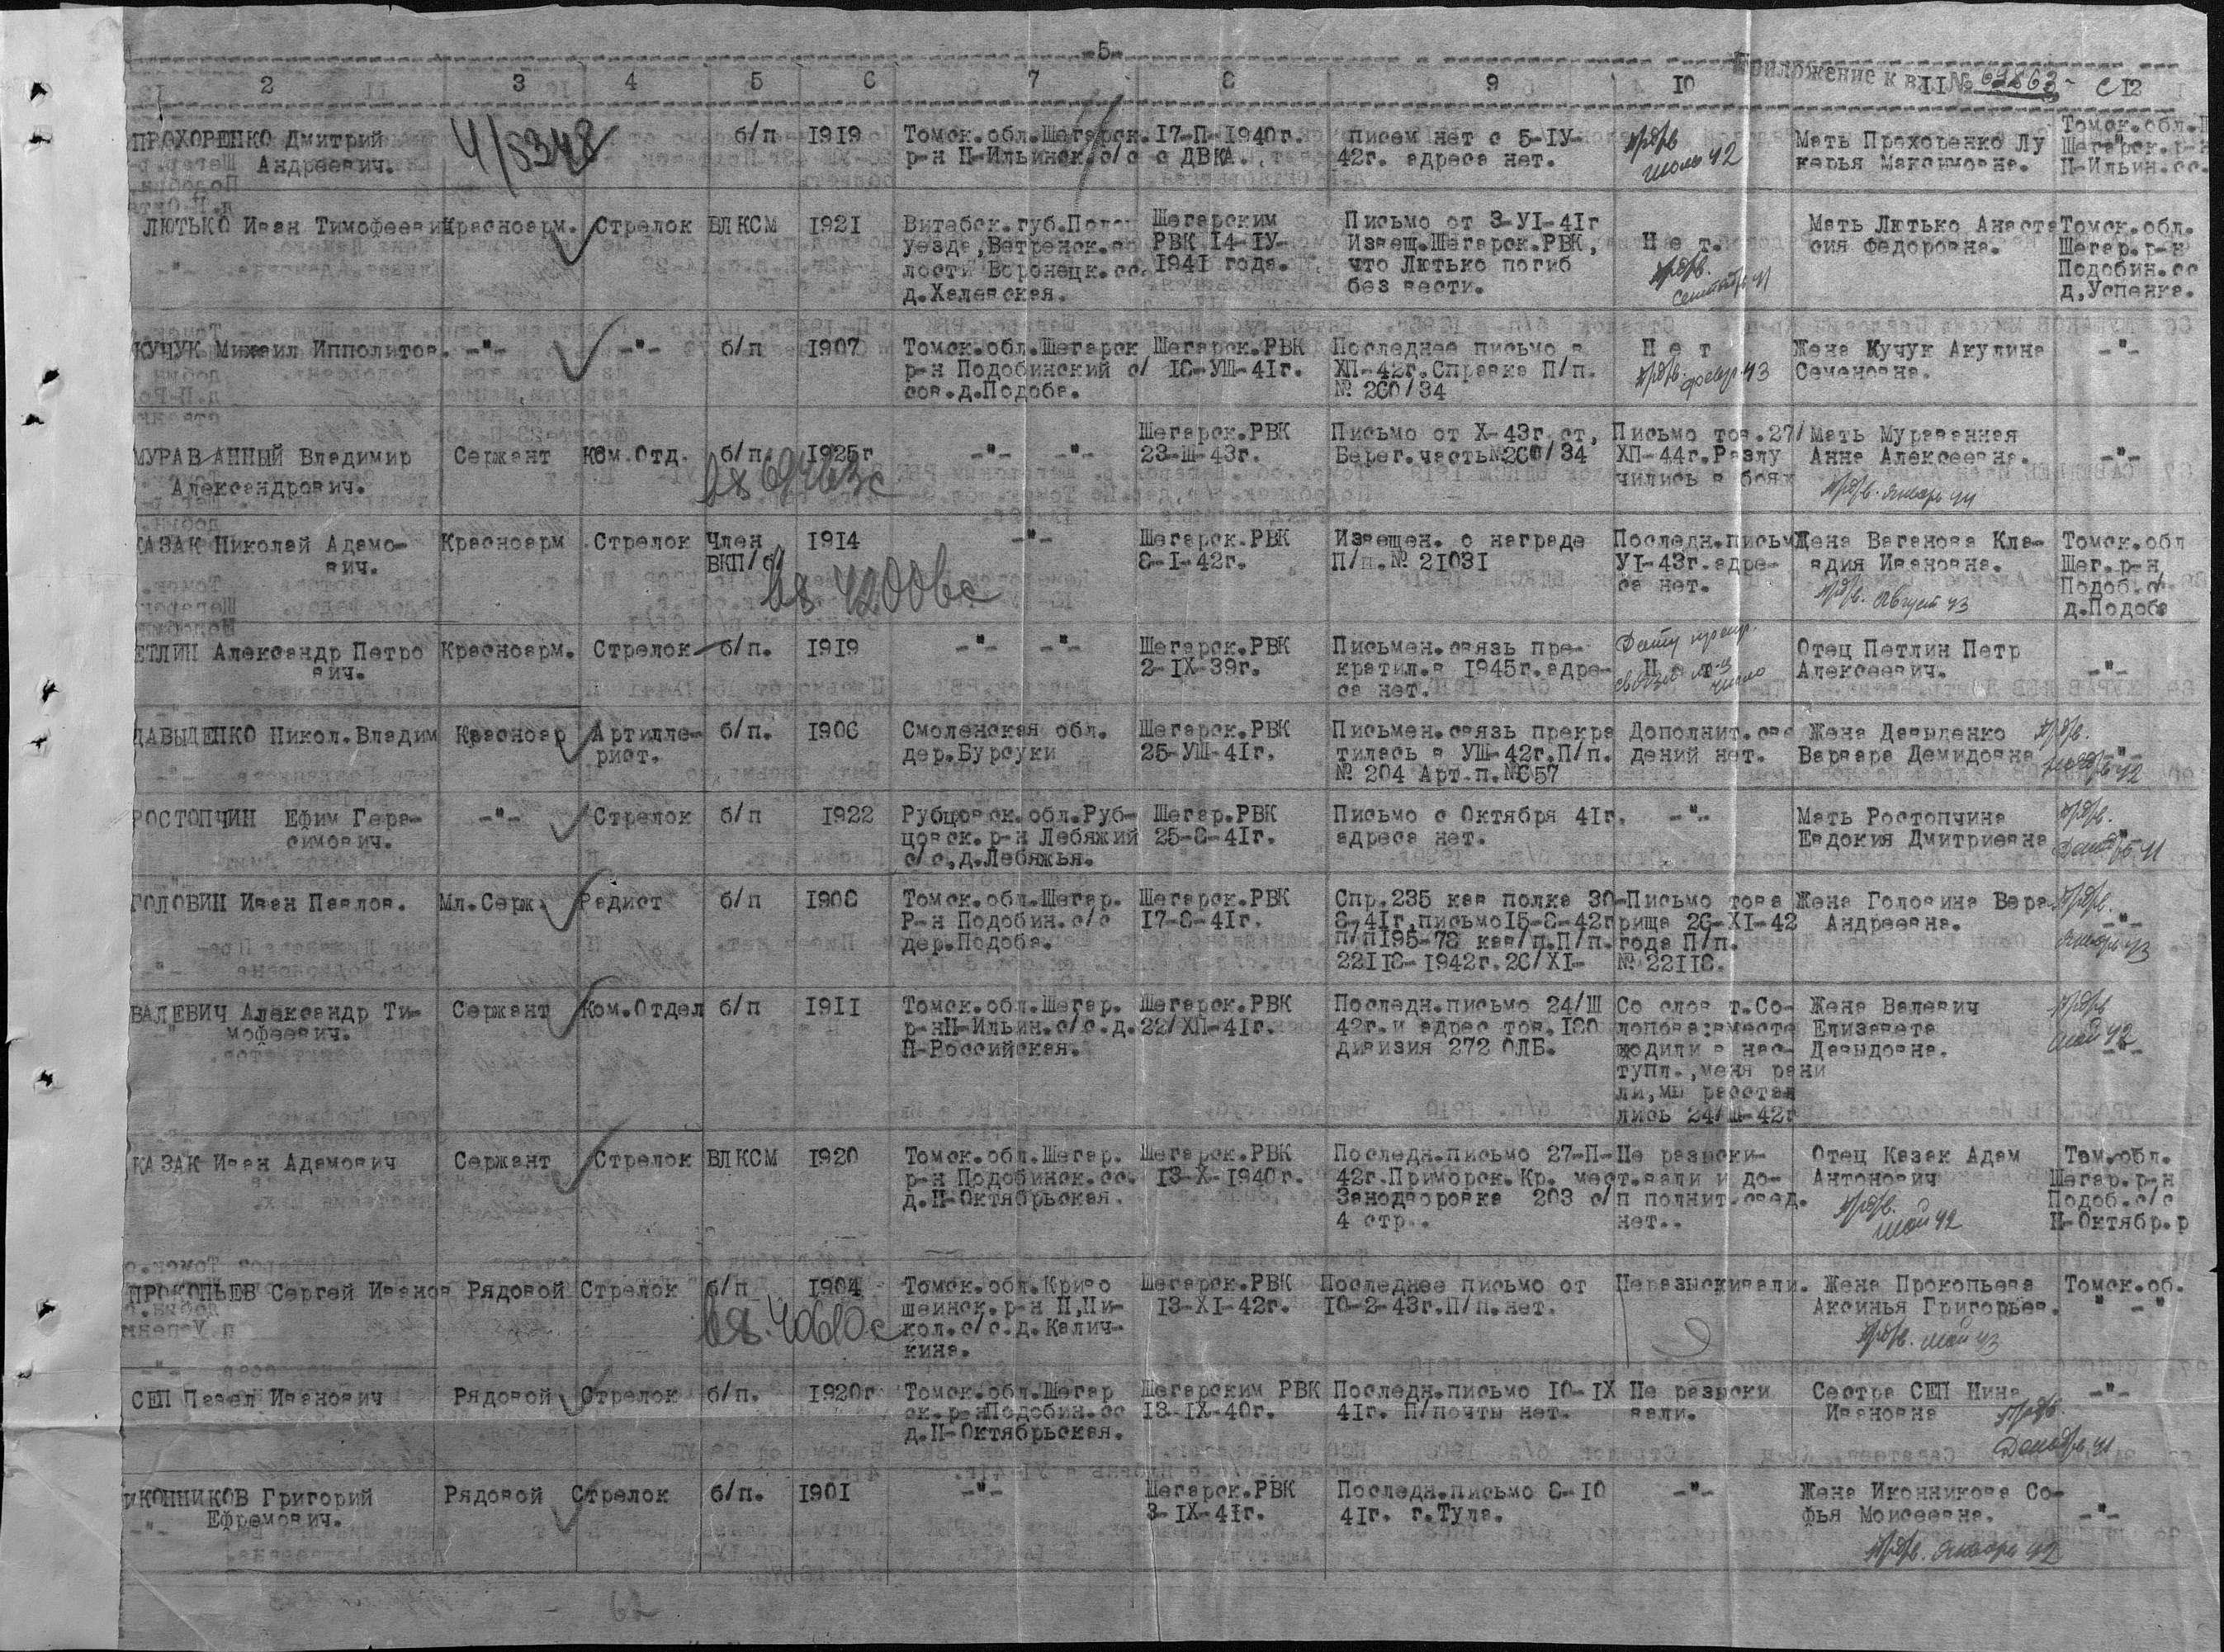 -5-
Приложение к вх № 69863 - с
2 3 4 5 6 7 8 9 10 11 12
ПРОХОРЕНКО Дмитрий
Андреевич.
4/5348
б/п
1919
Томск.обл.Шегарск.
р-н Н-Ильинск.с/с
17-П-1940г.
с ДВКА.
писем нет с 5-IУ-
42г. адреса нет.
июль 42
Мать Прохоренко Лу
керья Максимовна.
Томск.обл.
Шегарск.р-н
Н-Ильин.сс.
ЛЮТЬКО Иван Тимофеевич
Красноарм.
Стрелок
ВЛКСМ
1921
Витебск.губ.Полоц
уезда,Ветренск.во
лости Воронецк.сс.
д.Халевская.
Шегарским
РВК 14-IУ-
1941 года.
Письмо от 3-УI-41г
Извещ.Шегарск.РВК,
что Лютько погиб
без вести.
Н е т.
сентябрь 41
Мать Лютько Анаста
сия Федоровна.
Томск.обл.
Шегар.р-н
Подобин.сс
д,Успенка.
КУЧУК Михаил Ипполитов.
-"-
-"-
б/п
1907
Томск.обл.Шегарск
р-н Подобинский с/
сов.д.Подоба.
Шегарск.РВК
18-УШ-41г.
Последнее письмо в
ХП-42г.Справка П/п.
№ 260/34
Н е т
февр.43
Жена Кучук Акулина
Семеновна.
-"-
МУРАВАННЫЙ Владимир
Александрович.
Сержант
Ком.Отд.
б/п.
1925г
-"- -"-
Шегарск.РВК
23-Ш-43г.
Письмо от Х-43г.ст,
Берег.часть№260/34
Письмо тов.27/
ХП-44г.Разлу
чились в боях
Мать Мураванная
Анна Алексеевна.
январь 44
-"-
КАЗАК Николай Адамо-
вич.
Красноарм
Стрелок
Член
ВКП/б/
1914
-"-
Шегарск.РВК
8-I-42г.
Извещен. о награде
П/п.№ 21031
Последн.письм
УI-43г.адре-
са нет.
Жена Ваганова Кла-
вдия Ивановна.
август 43
Томск.обл
Шег.р-н
Подоб.с/
д.Подоба
ПЕТЛИН Александр Петро
вич.
Красноарм.
Стрелок
б/п.
1919
-"- -"-
Шегарск.РВК
2-IХ-39г.
Письмен.связь пре-
кратил.в 1945г.адре-
са нет.
Н е т
Отец Петлин Петр
Алексеевич.
-"-
ДАВЫДЕНКО Никол.Владим
Красноар
Артилле-
рист.
б/п.
1906
Смоленская обл.
дер.Бурсуки
Шегарск.РВК
25-УШ-41г.
Письмен.связь прекра
тилась в УШ-42г.П/п.
№ 204 Арт.п.№657
Дополнит.све
дений нет.
Жена Давыденко
Варвара Демидовна
-"-
РОСТОПЧИН Ефим Гера-
симович.
-"-
Стрелок
б/п
1922
Рубцовск.обл.Руб-
цовск.р-н Лебяжий
с/с,д.Лебяжья.
Шегар.РВК
25-8-41г.
Письмо с Октября 41г.
адреса нет.
-"-
Мать Ростопчина
Евдокия Дмитриевна
ГОЛОВИН Иван Павлов.
Мл.Серж.
Радист
б/п
1908
Томск.обл.Шегар.
Р-н Подобин.с/с
дер.Подоба.
Шегарск.РВК
17-8-41г.
Спр.235 кав полка 30-
8-41г,письмо15-8-42г
п/п195-78 кав/п.П/п.
22118-1942г.26/ХI-
Письмо това
рища 26-ХI-42
года П/п.
№ 22118.
Жена Головина Вера
Андреевна.
-"-
январь 43
ВАЛЕВИЧ Александр Ти-
мофеевич.
Сержант
Ком.Отдел
б/п
1911
Томск.обл.Шегар.
р-нН-Ильин.с/с.д.
Н-Российская.
Шегарск.РВК
22/ХП-41г.
Последн.письмо 24/Ш
42г.и адрес тов.180
дивизия 272 ОЛБ.
Со слов т.Со-
лопова:вместе
ходили в нас-
тупл.,меня рани
ли,мы расстав
лись 24/Ш-42г
Жена Валевич
Елизавета
Давыдовна.
май 42
-"-
КАЗАК Иван Адамович
Сержант
Стрелок
ВЛКСМ
1920
Томск.обл.Шегар.
р-н Подобинск.сс.
д.Н-Октябрьская.
Шегарск.РВК
13-Х-1940г.
Последн.письмо 27-П-
42г.Приморск.Кр. мест.
Занодворовка 203 с/п
4 стр..
Не разыски-
вали и до-
полнит.свед.
нет..
Отец Казак Адам
Антонович
май 42
Том.обл.
Шегар.р-н
Подоб.с/с
Н-Октябр.р
ПРОКОПЬЕВ Сергей Иванов
Рядовой
Стрелок
б/п
1904
вх.40610с
Томск.обл.Криво
шеинск.р-н Н,Ни-
кол.с/с.д.Калич-
кина.
Шегарск.РВК
13-ХI-42г.
Последнее письмо от
10-2-43г.П/п.нет.
Неразыскивали.
Жена Прокопьева
Аксинья Григорьев.
май 43
Томск.об.
" -"
СЕП Павел Иванович
Рядовой
Стрелок
б/п.
1920г
Томск.обл.Шегар
ск.р-нПодобин.сс
д.Н-Октябрьская.
Шегарским РВК
13-IХ-40г.
Последн.письмо 10-IХ
41г. П/почты нет.
Не разыски
вали.
Сестра СЕП Нина
Ивановна
-"-
декабрь 41
ИКОННИКОВ Григорий
Ефремович.
Рядовой
Стрелок
б/п.
1901
-"-
Шегарск.РВК
3-IХ-41г.
Последн.письмо 8-10
41г. г.Тула.
-"-
Жена Иконникова Со-
фья Моисеевна.
-"-
январь 42